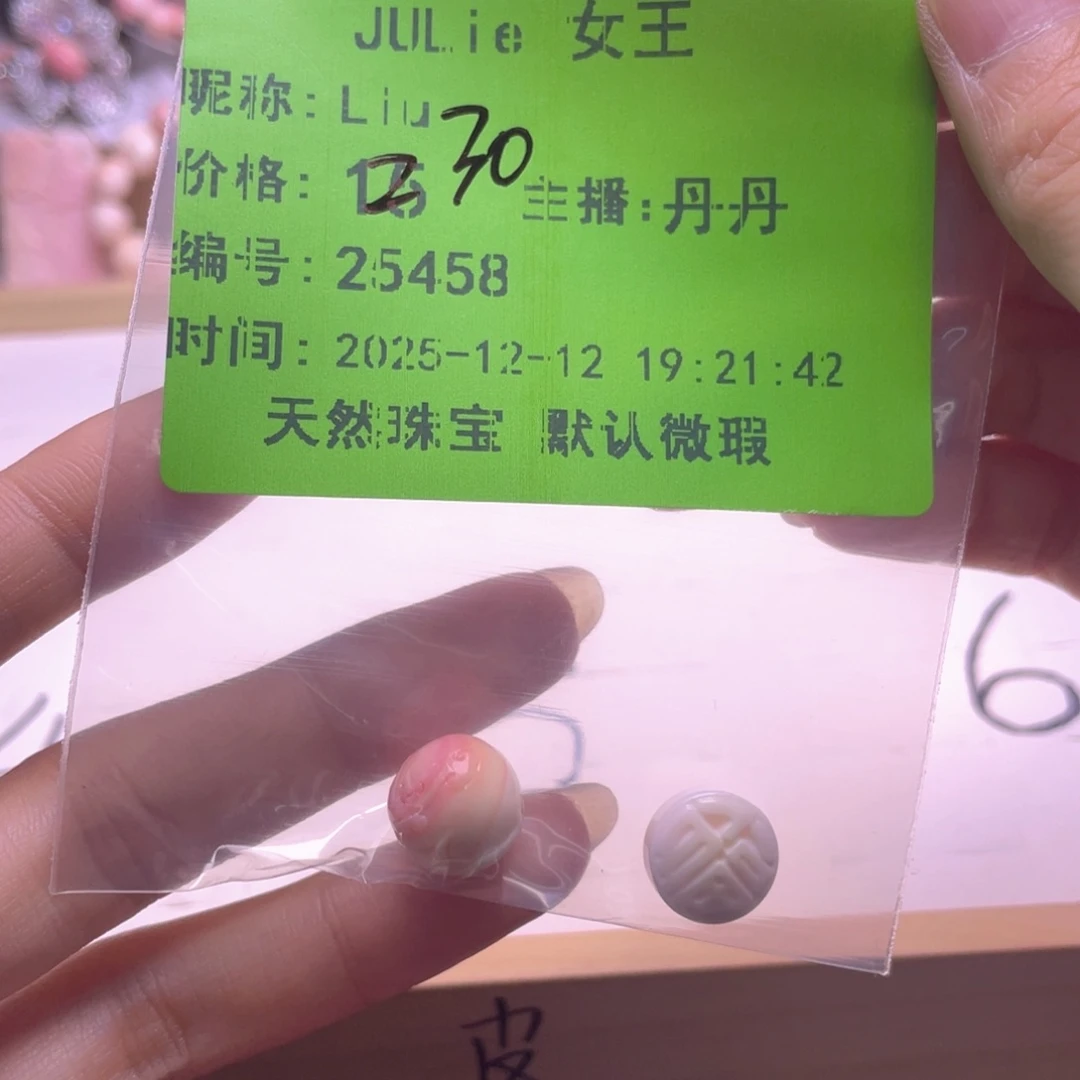 JULie 女王
昵称: Liu
价格: 15 2 30 主播:丹丹
编号: 25458
时间: 2025-12-12 19:21:42
天然珠宝 默认微瑕
6
皮